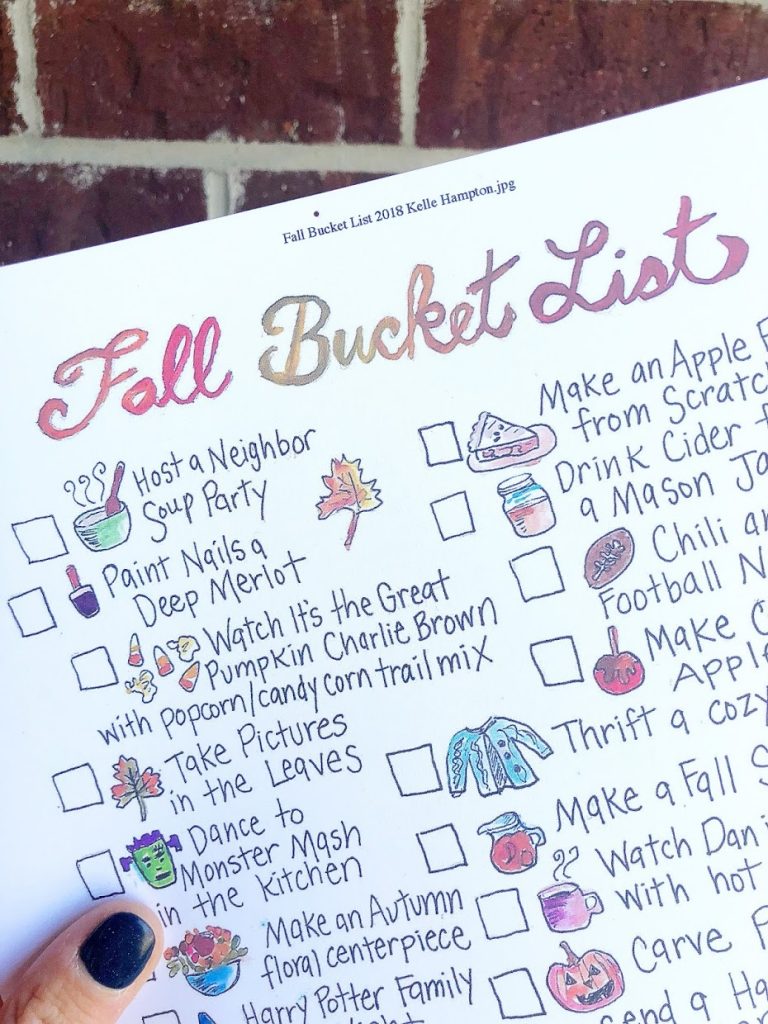 Fall Bucket List 2018 Kelle Hampton.jpg
Fall Bucket List
Host a Neighbor
Soup Party
Paint Nails a
Deep Merlot
Watch It's the Great
Pumpkin Charlie Brown
with popcorn/candy corn trail mix
Take Pictures
in the Leaves
Dance to
Monster Mash
in the Kitchen
Make an Autumn
floral centerpiece
Harry Potter Family
Make an Apple
from Scratch
Drink Cider
a Mason
Chili
Football
Make
Thrift a cozy
Make a Fall
Watch
with hot
Carve
Send a